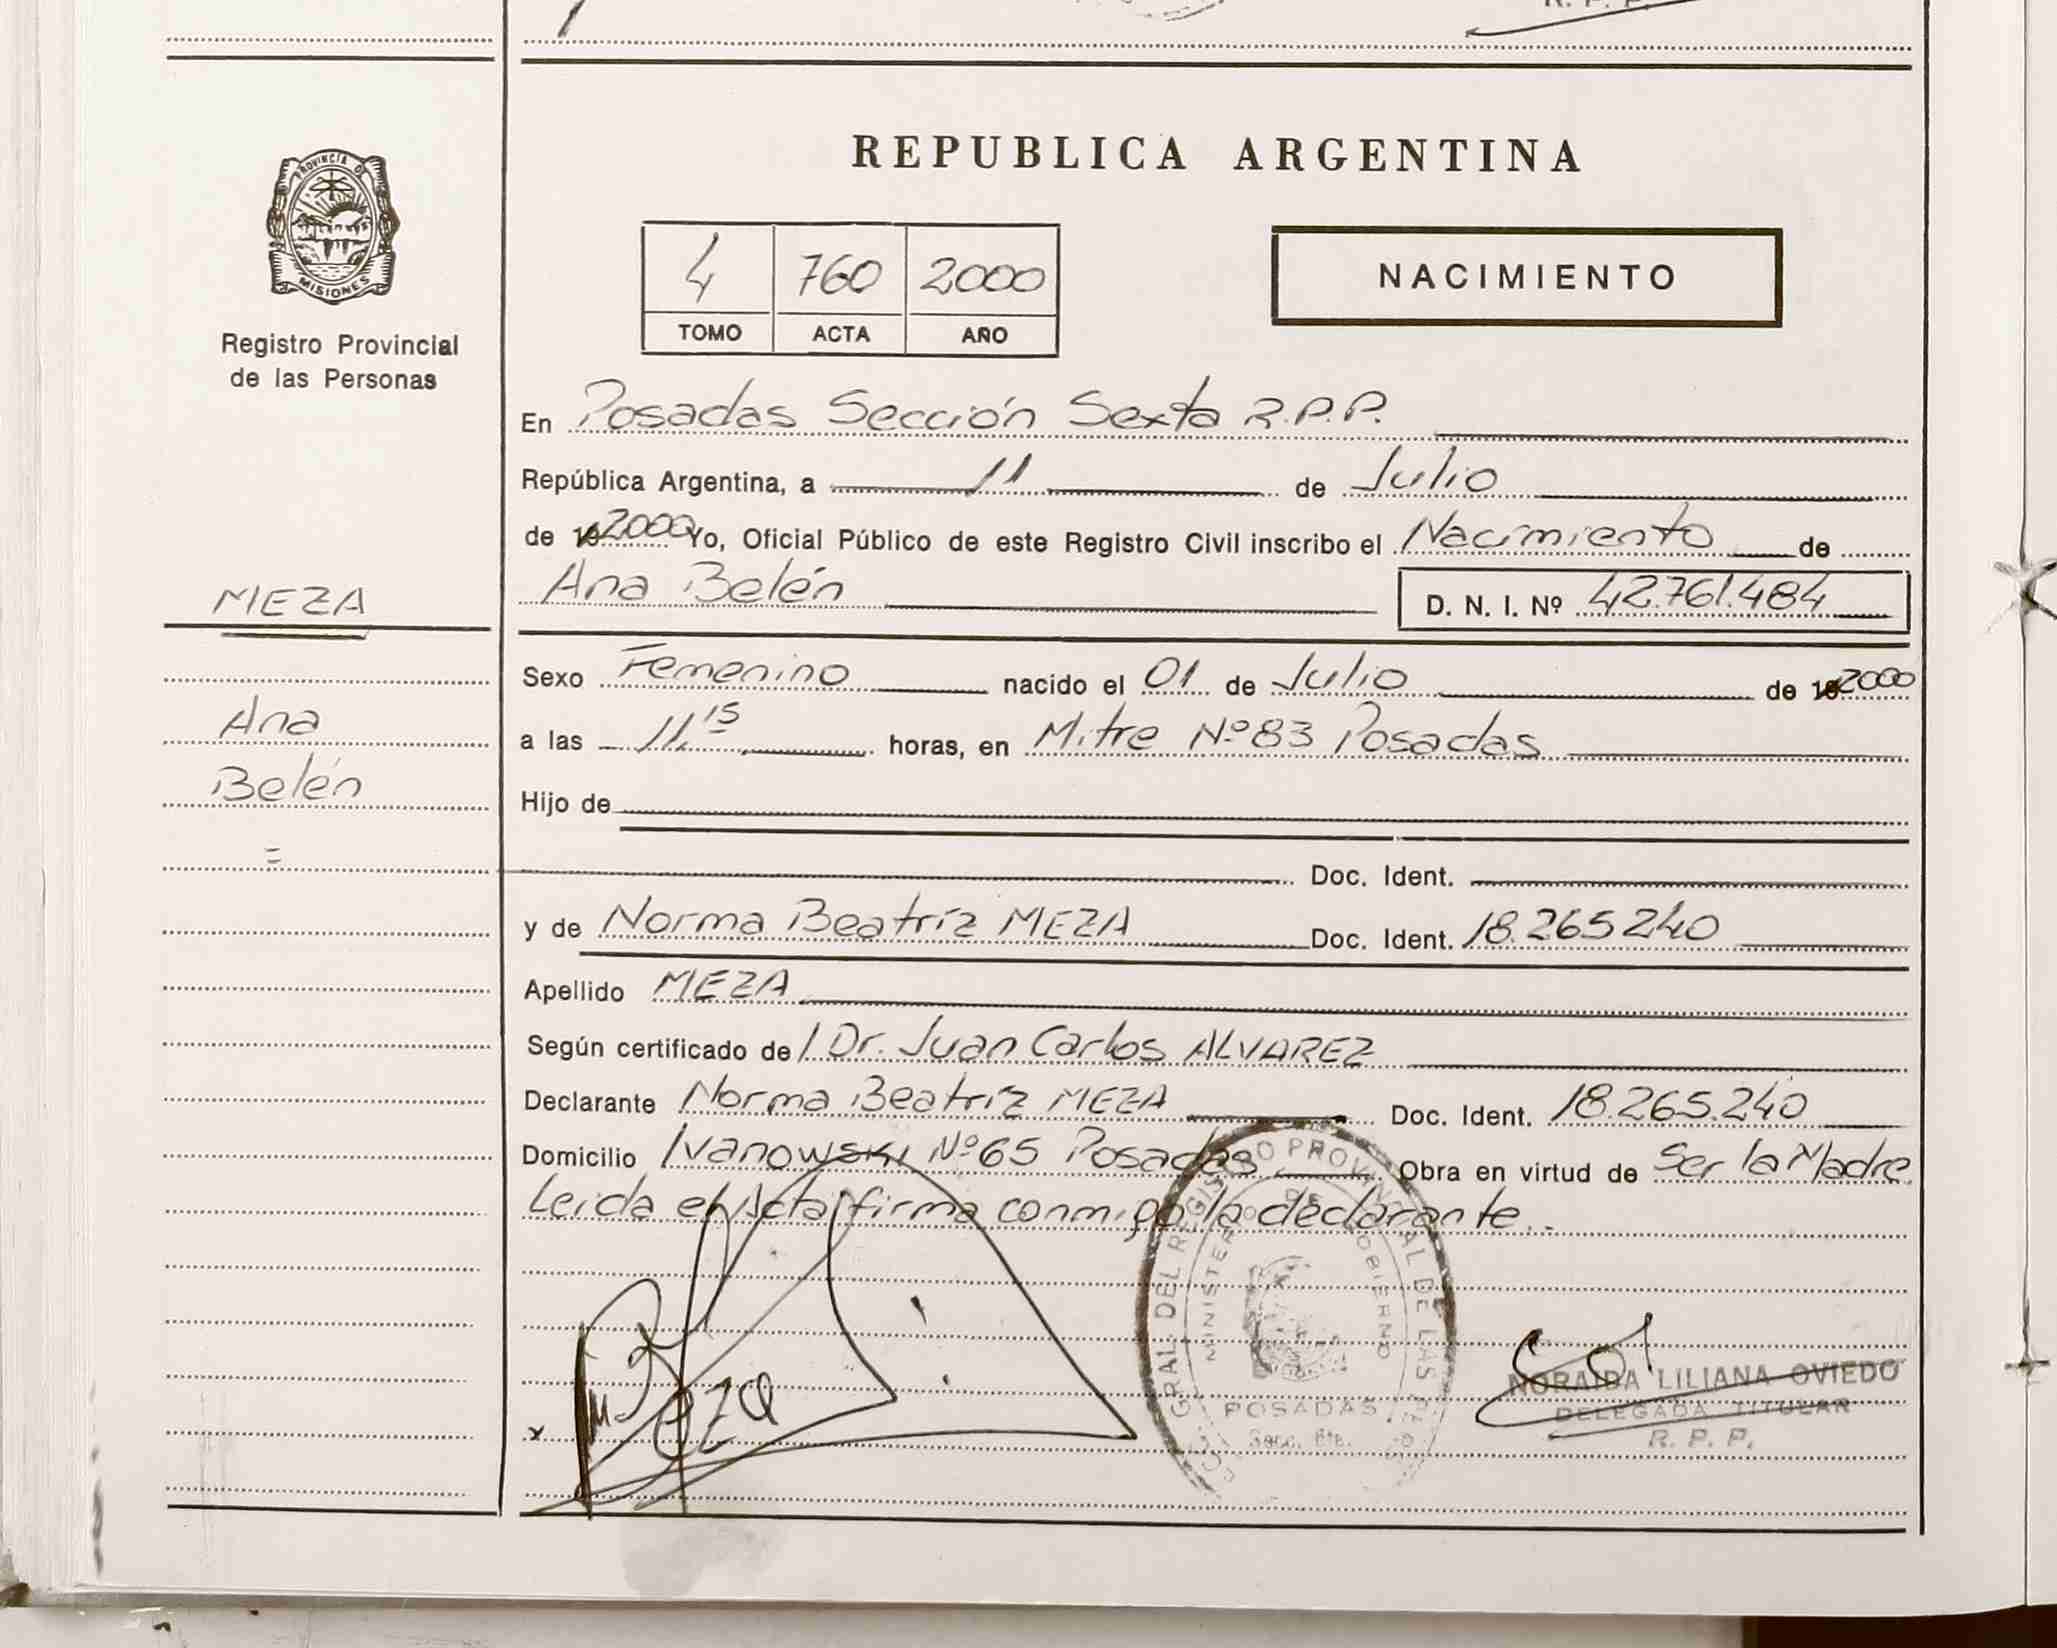 R. P. P.
PROVINCIA DE
MISIONES
Registro Provincial
de las Personas
MEZA
Ana
Belén
=
REPUBLICA ARGENTINA
4 760 2000
TOMO ACTA AÑO
NACIMIENTO
En Posadas Sección Sexta R.P.P.
República Argentina, a 11 de Julio
de 19 2000 Yo, Oficial Público de este Registro Civil inscribo el Nacimiento de
Ana Belén D. N. I. Nº 42.761.484
Sexo Femenino nacido el 01 de Julio de 19 2000
a las 11.15 horas, en Mitre Nº 83 Posadas
Hijo de
Doc. Ident.
y de Norma Beatríz MEZA Doc. Ident. 18.265240
Apellido MEZA
Según certificado de / Dr. Juan Carlos ALVAREZ
Declarante Norma Beatríz MEZA Doc. Ident. 18.265.240
Domicilio Ivanowski Nº 65 Posadas Obra en virtud de Ser la Madre
Leida el Acta firma conmigo la declarante..
GRAL. DEL REGISTRO PROVINCIAL DE LAS
MINISTERIO DE GOBIERNO
POSADAS
Secc. 6ta.
x Meza
NORAIDA LILIANA OVIEDO
DELEGADA TITULAR
R. P. P.